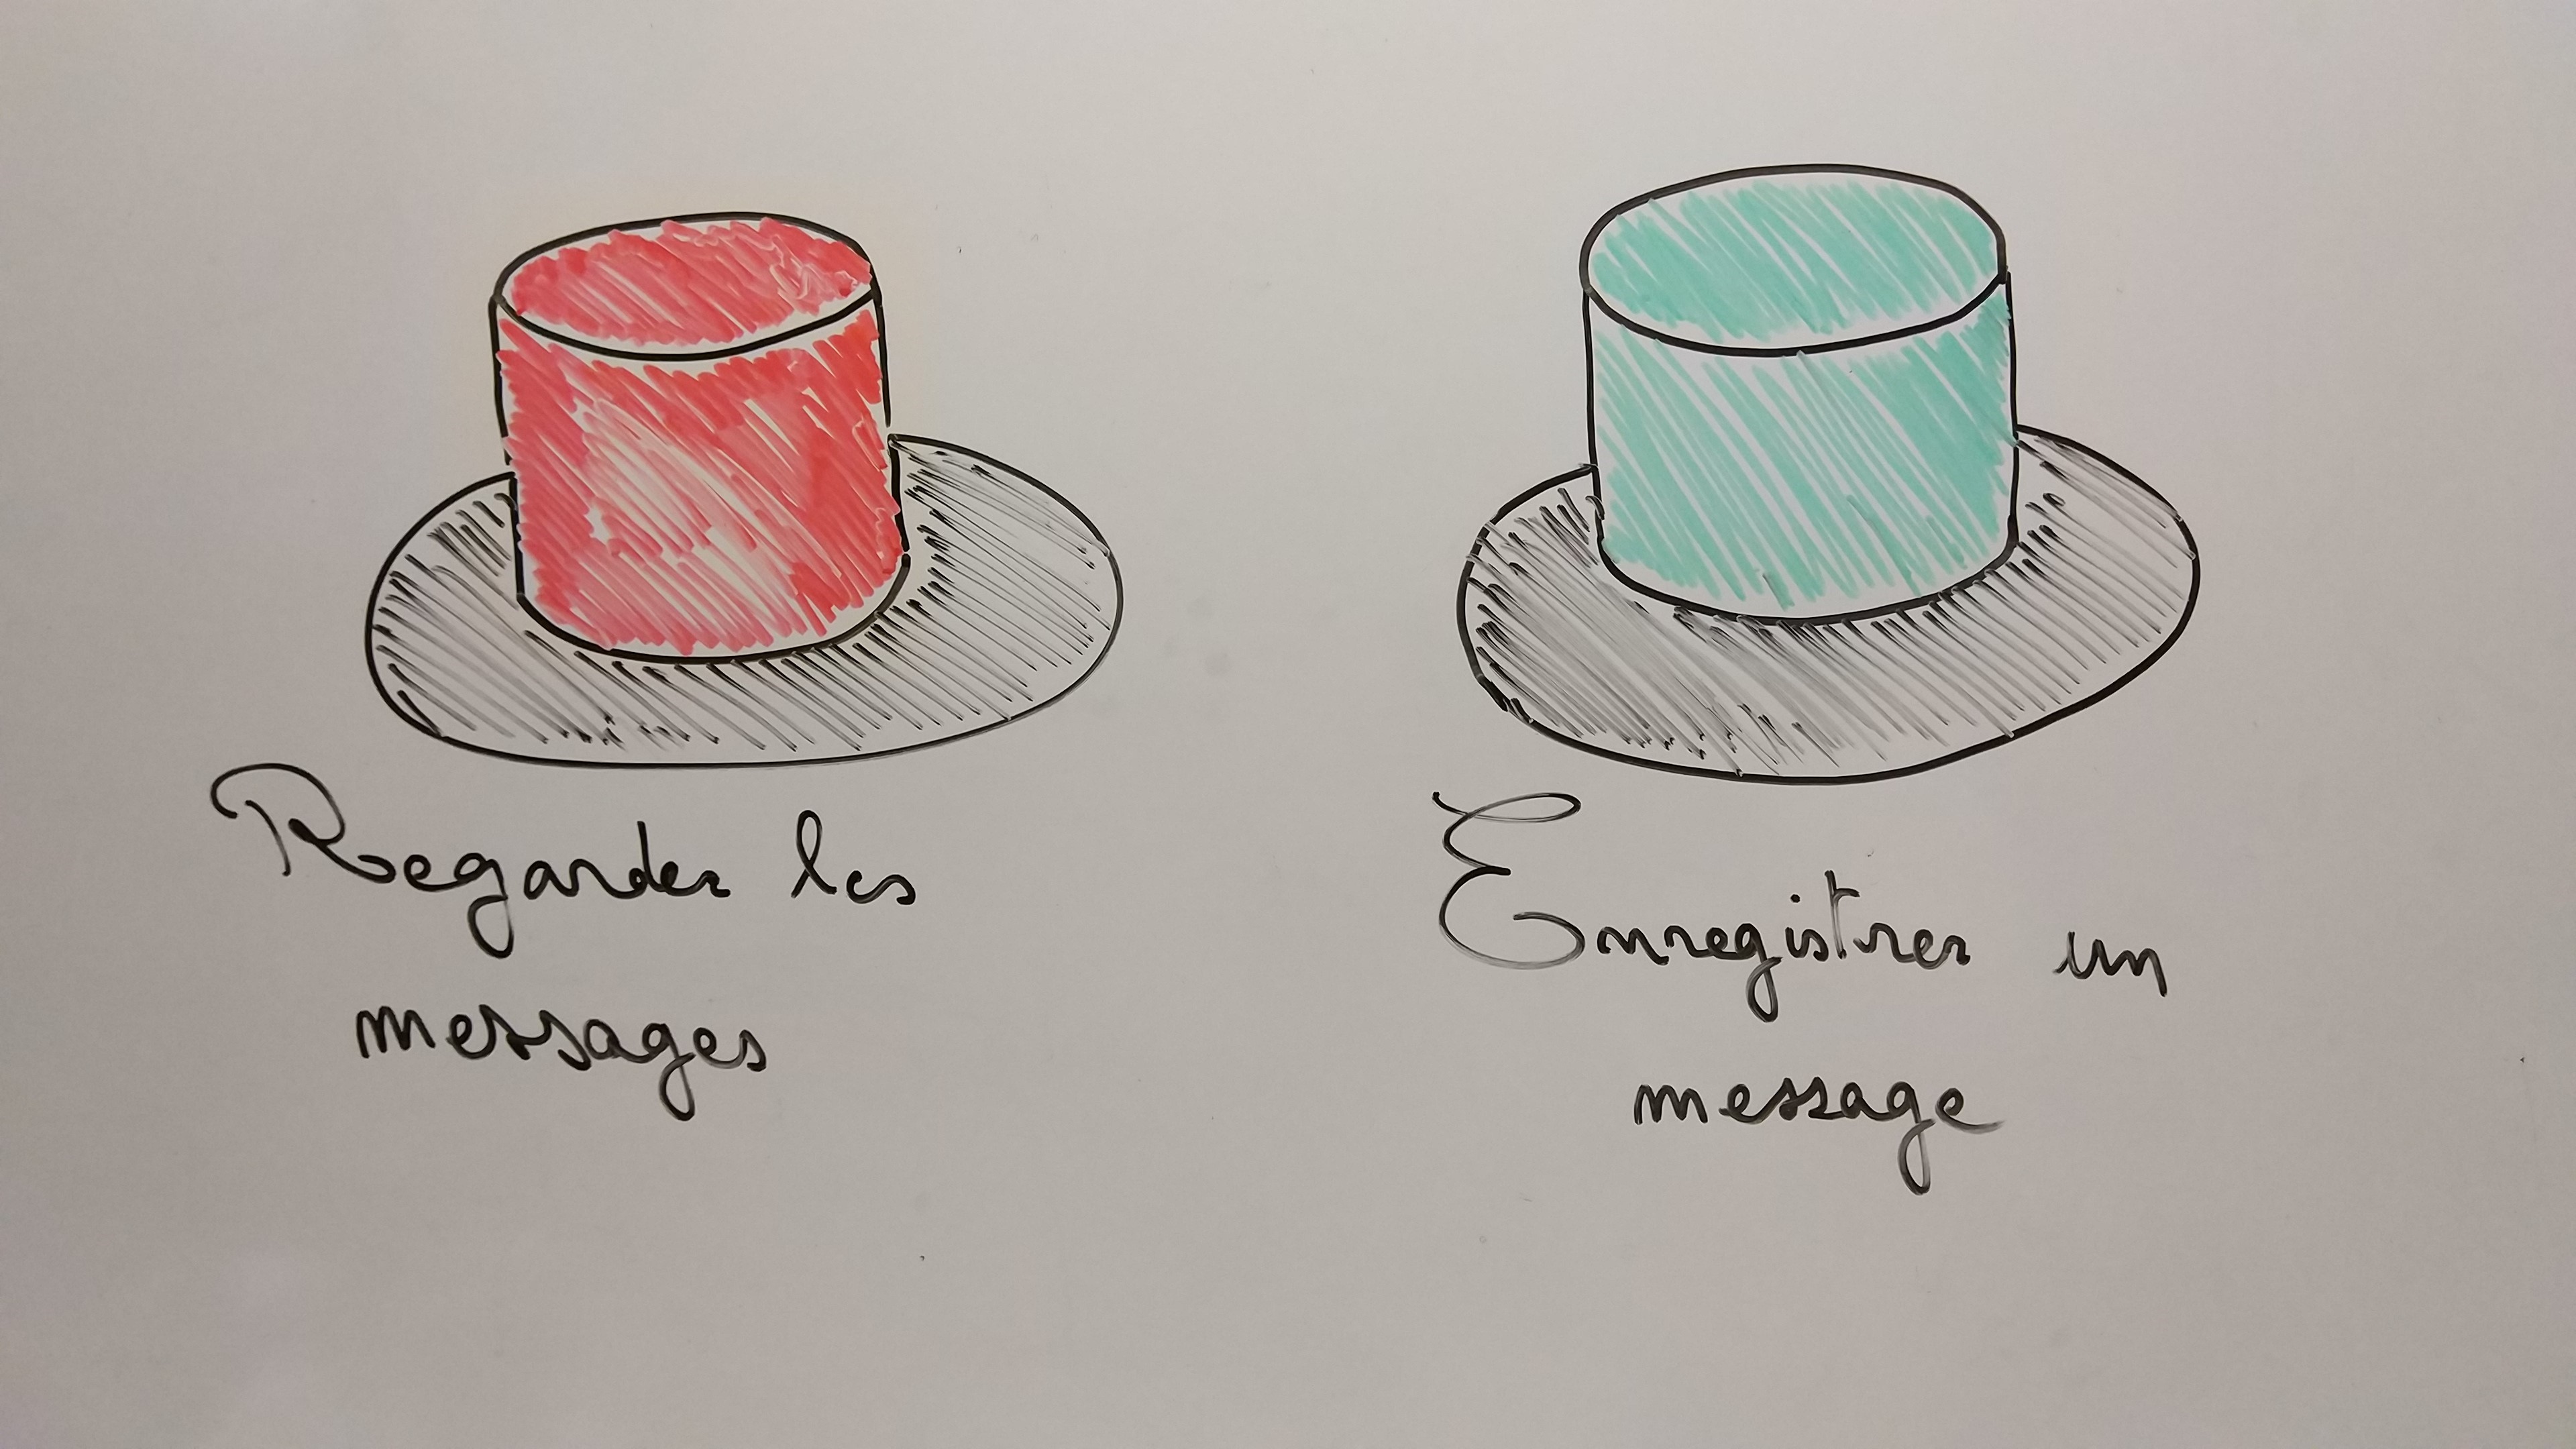 Regarder les
messages
Enregistrer un
message